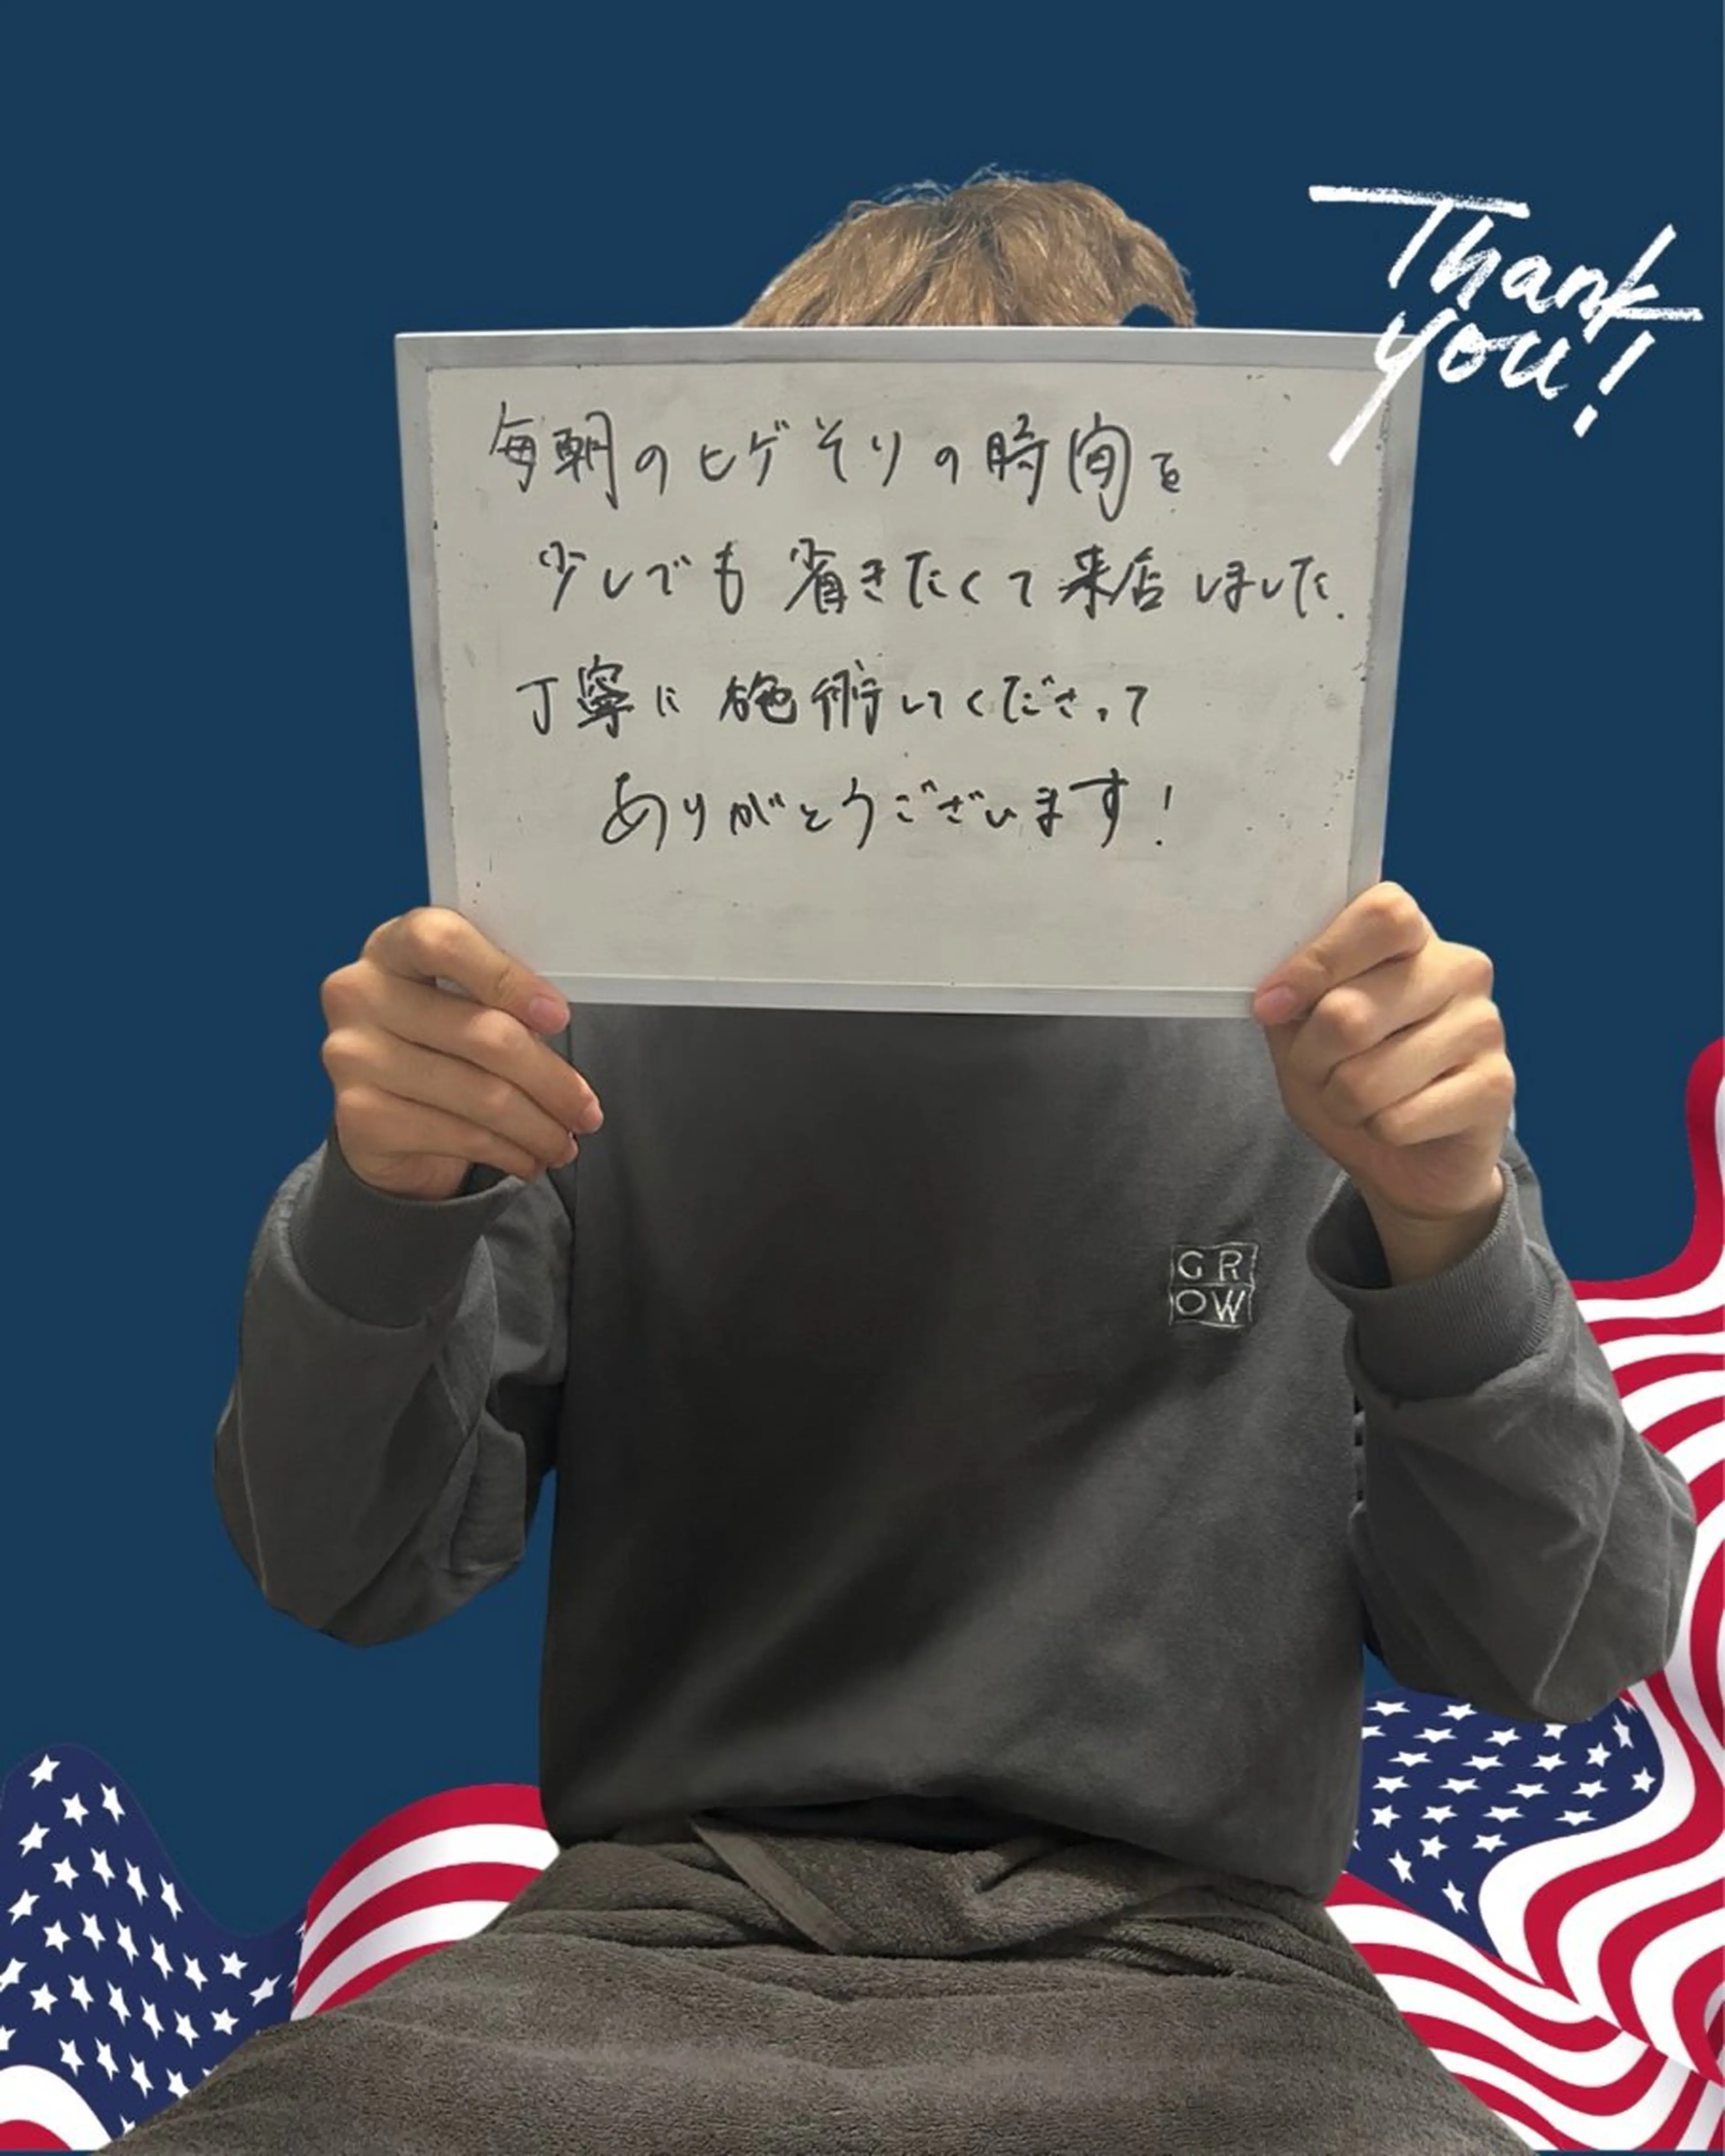 Thank
you!
毎朝のヒゲそりの時間を
少しでも省きたくて来店しました.
丁寧に施術してくださって
ありがとうございます!
GR
OW